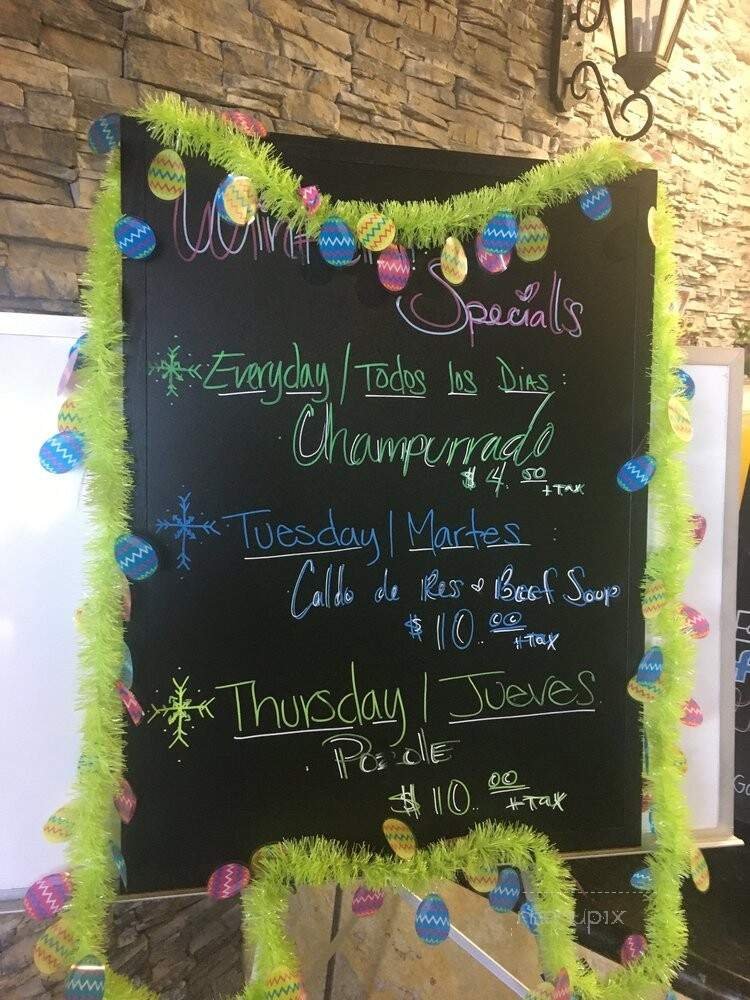 Winter
Specials
Everyday / Todos los Dias :
Champurrado
$ 4.50 +tax
Tuesday / Martes :
Caldo de Res Beef Soup
$ 10.00 +tax
Thursday / Jueves
Pozole
$ 10.00 +tax